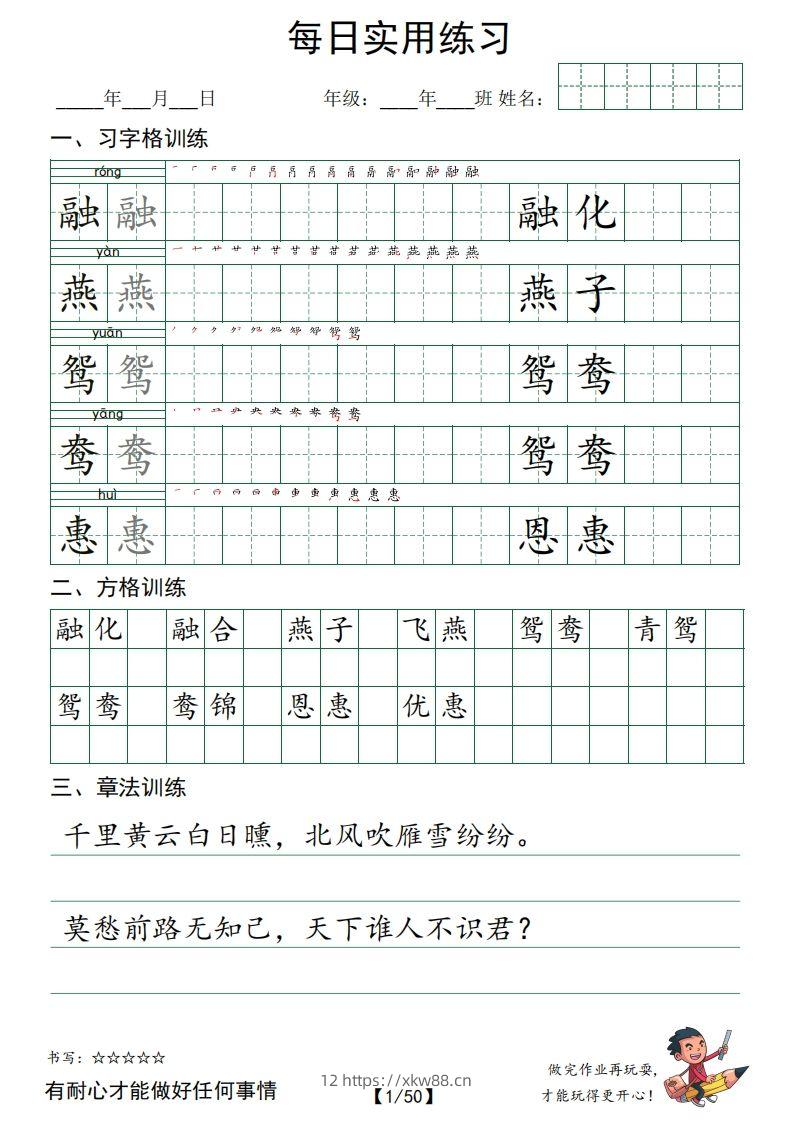 每日实用练习
_____年___月___日 年级：____年____班 姓名：
一、习字格训练
róng
融 融 融 化
yàn
燕 燕 燕 子
yuān
鸳 鸳 鸳 鸯
yāng
鸯 鸯 鸳 鸯
huì
惠 惠 恩 惠
二、方格训练
融 化 融 合 燕 子 飞 燕 鸳 鸯 青 鸳
鸳 鸯 鸯 锦 恩 惠 优 惠
三、章法训练
千里黄云白日曛，北风吹雁雪纷纷。
莫愁前路无知己，天下谁人不识君？
书写：☆☆☆☆☆
有耐心才能做好任何事情
12 https://xkw88.cn
【1/50】
做完作业再玩耍，
才能玩得更开心！